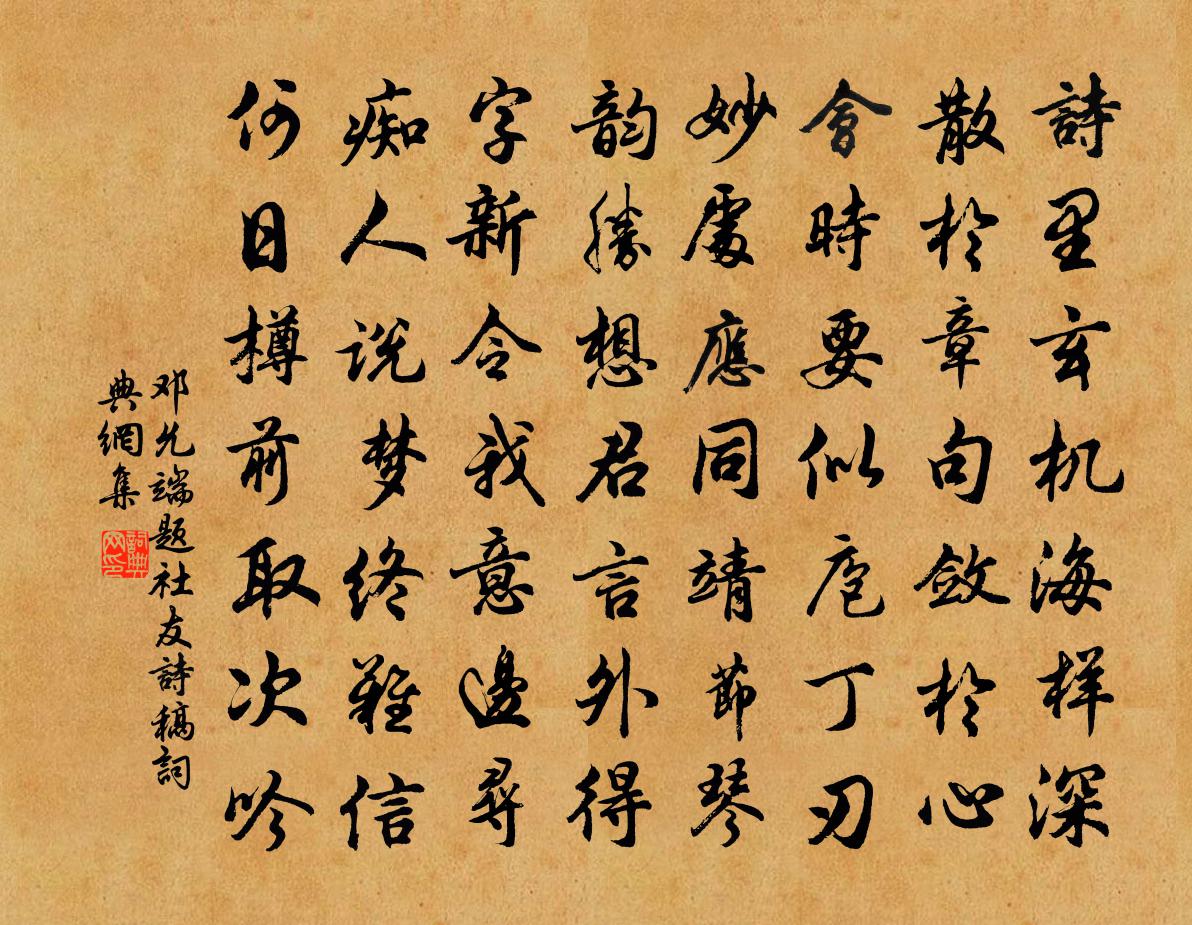 詩里玄机海样深
散於章句敛於心
會時要似庖丁刃
妙處應同靖節琴
韵勝想君言外得
字新令我意邊尋
痴人说梦终難信
何日樽前取次吟
邓允端题社友詩稿詞
典網集
詞典
网印